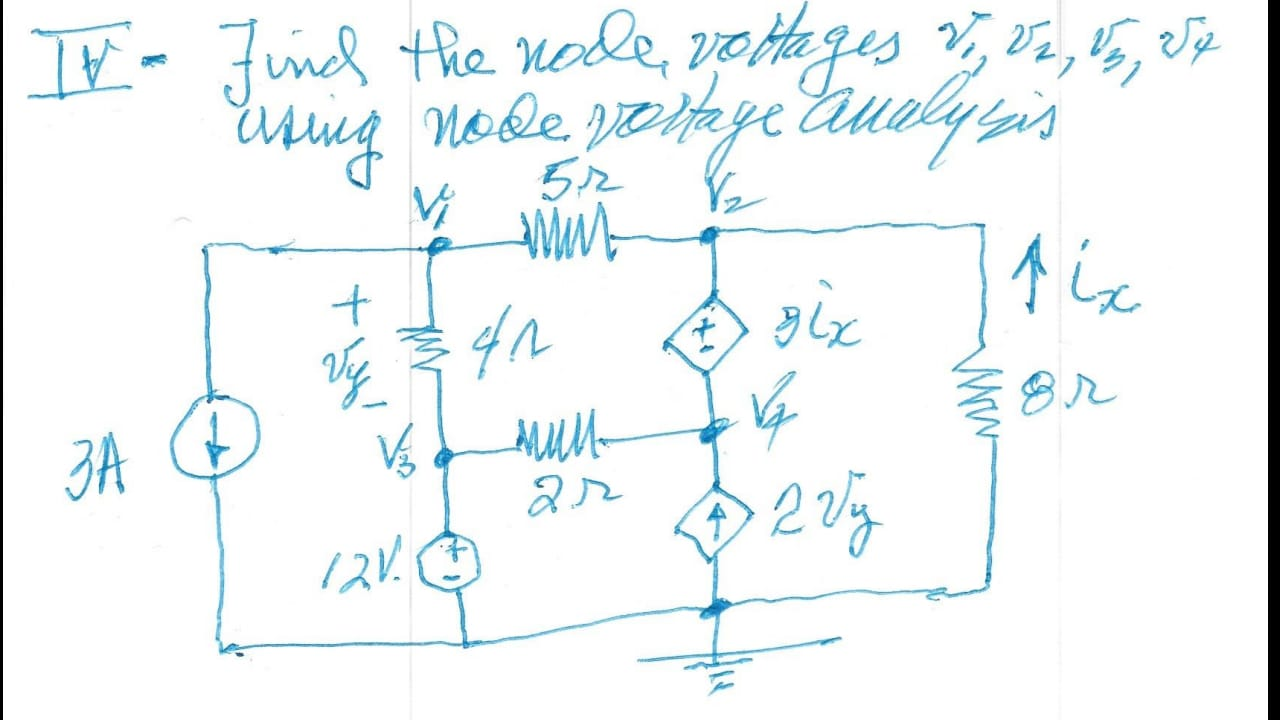 IV - Find the node voltages v1, v2, v3, v4
using node voltage analysis
5Ω
V1
V2
+
vy
-
4Ω
+
-
3ix
ix
8Ω
3A
V3
V4
2Ω
12V.
+
-
2vy